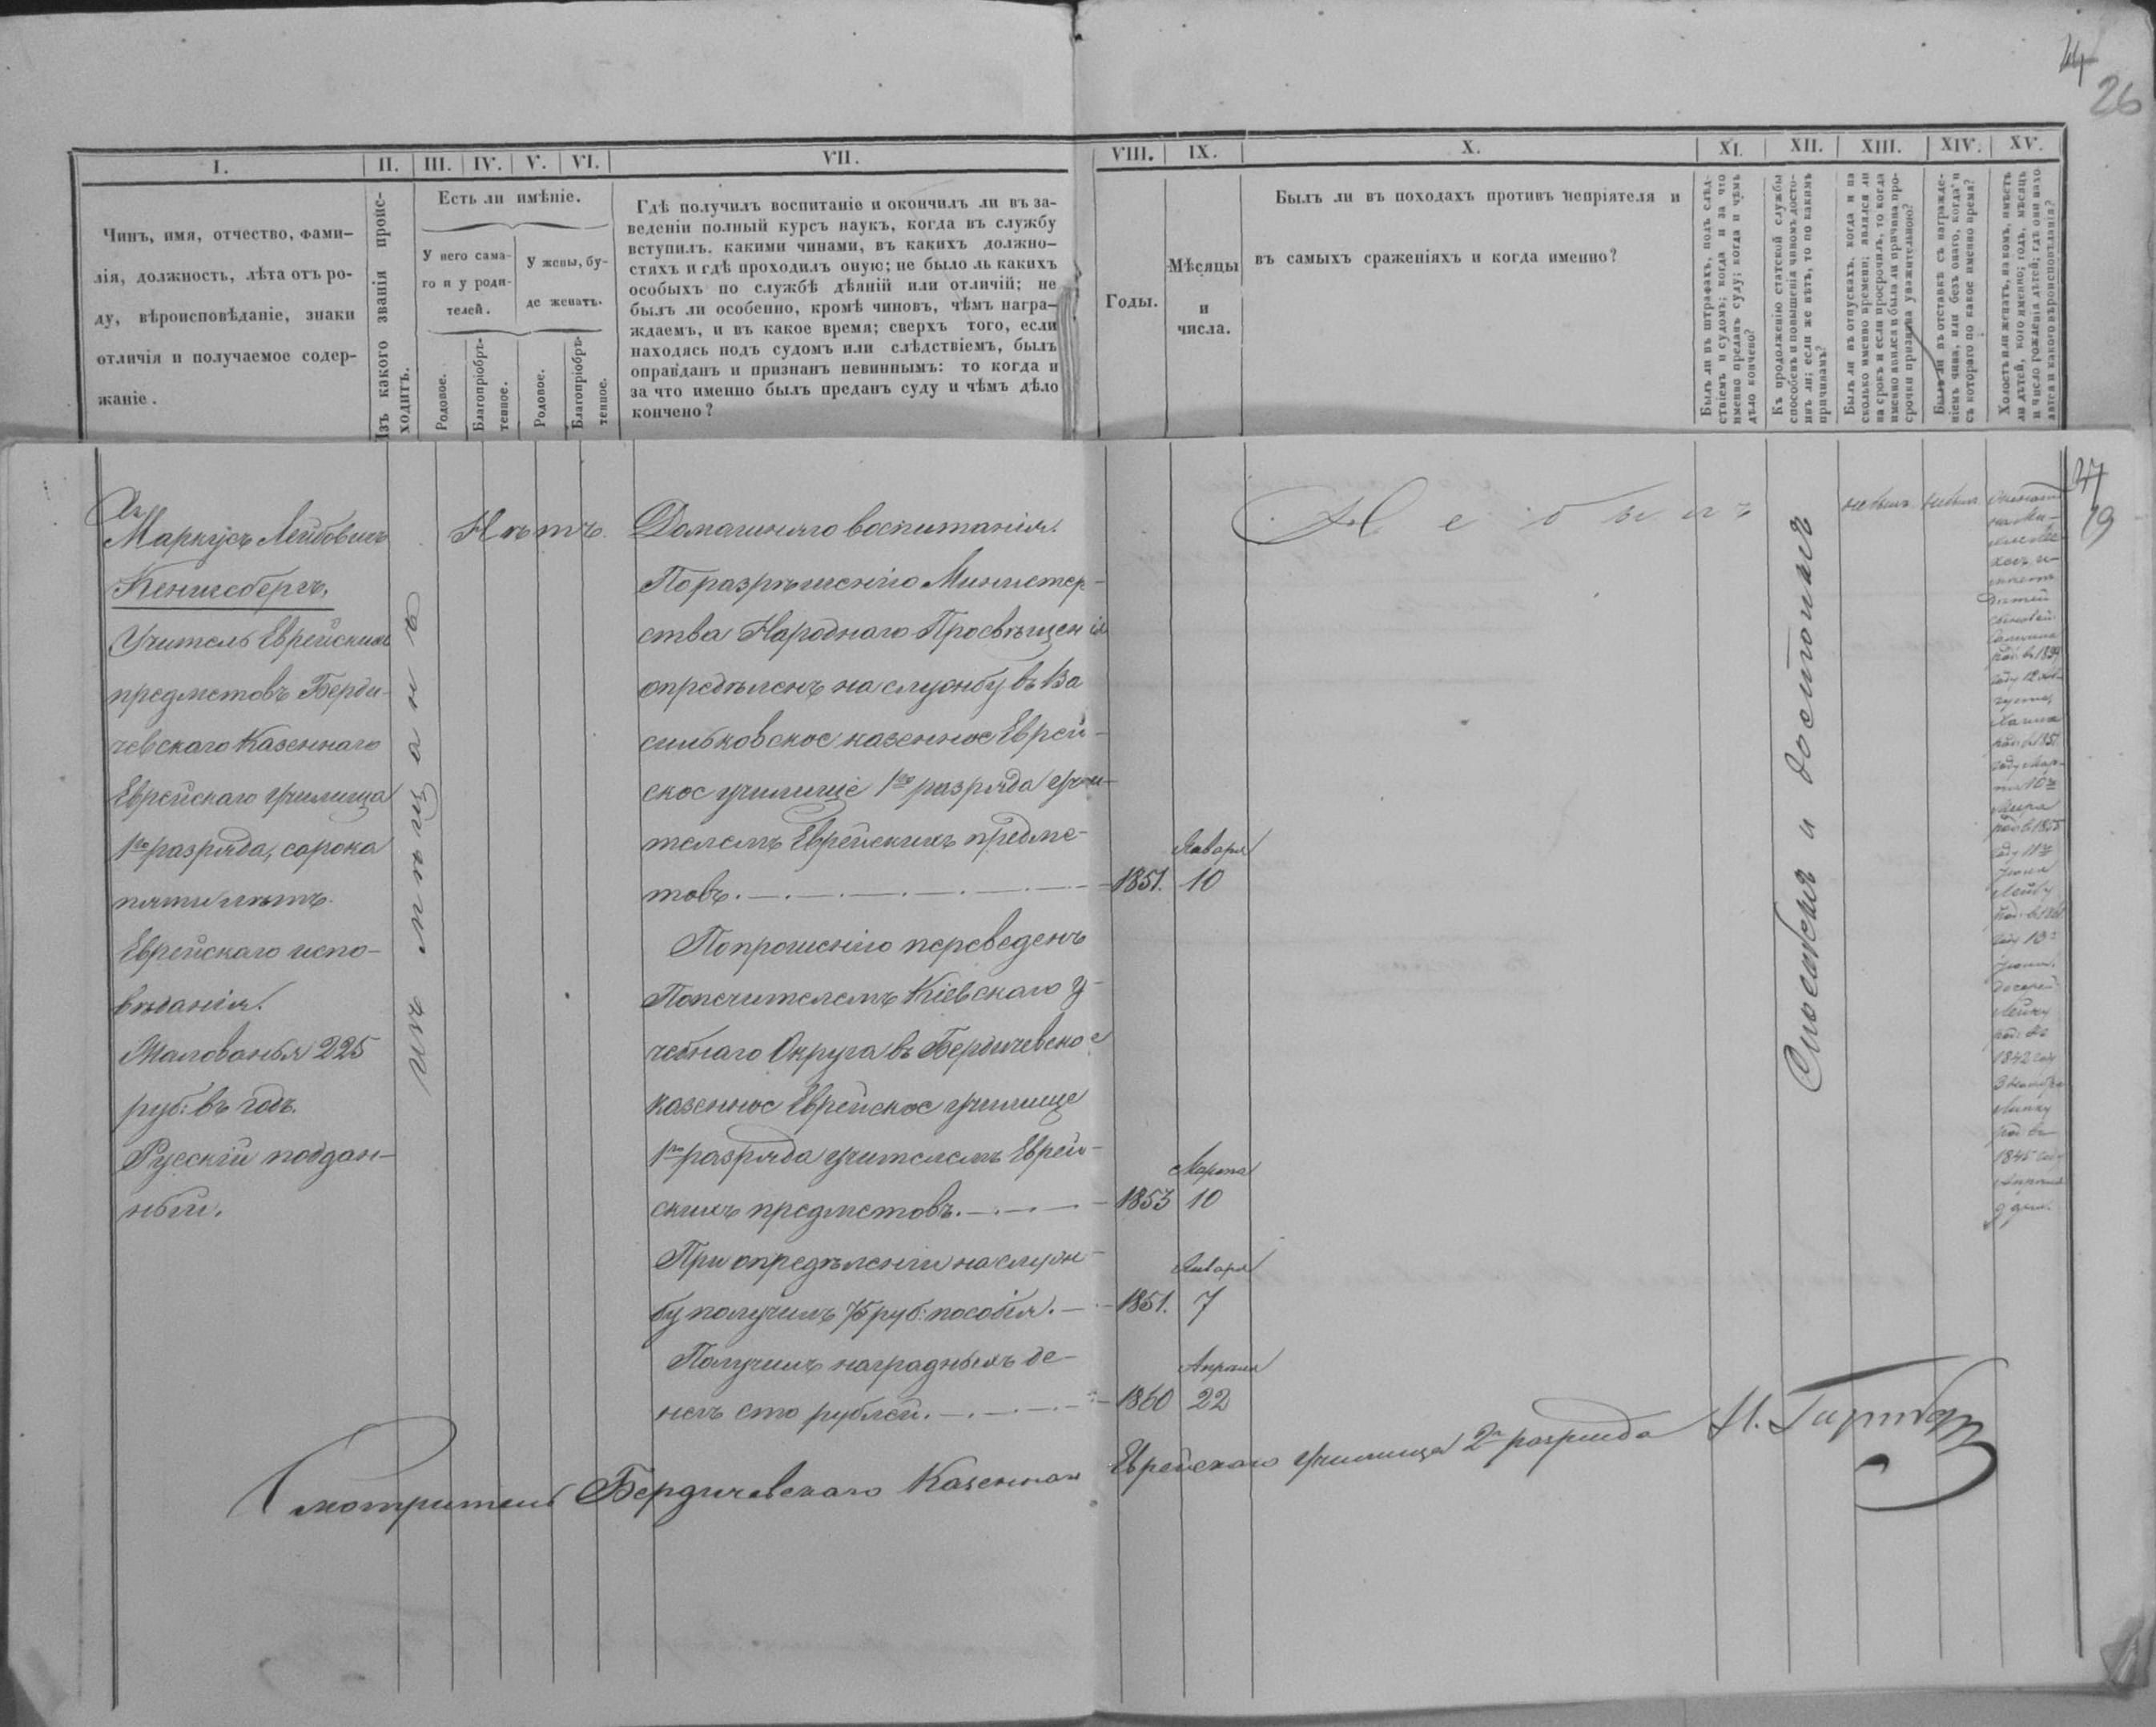 44
26
I.
II.
III.
IV.
V.
VI.
VII.
VIII.
IX.
X.
XI.
XII.
XIII.
XIV.
XV.
Чинъ, имя, отчество, фами-
лія, должность, лѣта отъ ро-
ду, вѣроисповѣданіе, знаки
отличія и получаемое содер-
жаніе.
Изъ какого званія проис-
ходитъ.
Есть ли имѣніе.
У него сама-
го и у роди-
телей.
У жены, бу-
де женатъ.
Родовое.
Благопріобрѣ-
тенное.
Родовое.
Благопріобрѣ-
тенное.
Гдѣ получилъ воспитаніе и окончилъ ли въ за-
веденіи полный курсъ наукъ, когда въ службу
вступилъ. какими чинами, въ какихъ должно-
стяхъ и гдѣ проходилъ оную; не было ль какихъ
особыхъ по службѣ дѣяній или отличій; не
былъ ли особенно, кромѣ чиновъ, чѣмъ награ-
ждаемъ, и въ какое время; сверхъ того, если
находясь подъ судомъ или слѣдствіемъ, былъ
оправданъ и признанъ невиннымъ: то когда и
за что именно былъ преданъ суду и чѣмъ дѣло
кончено?
Годы.
Мѣсяцы
и
числа.
Былъ ли въ походахъ противъ непріятеля и
въ самыхъ сраженіяхъ и когда именно?
Былъ ли въ штрафахъ, подъ слѣд-
ствіемъ и судомъ; когда и за что
именно преданъ суду; когда и чѣмъ
дѣло кончено?
Къ продолженію статской службы
способенъ и повышенія чиномъ досто-
инъ ли; если же нѣтъ, то по какимъ
причинамъ?
Былъ ли въ отпускахъ, когда и на
сколько именно времени; явился ли
на срокъ и если просрочилъ, то когда
именно явился и была ли причина про-
срочки признана уважительною?
Былъ ли въ отставкѣ съ награжде-
ніемъ чина, или безъ онаго, когда и
съ котораго по какое именно время?
Холостъ или женатъ, на комъ, имѣетъ
ли дѣтей, кого именно; годъ, мѣсяцъ
и число рожденія дѣтей; гдѣ они нахо-
дятся и какого вѣроисповѣданія?
Маркусъ Лейбовичъ
Кенигсбергъ,
Учитель Еврейскихъ
предметовъ Берди-
чевскаго Казеннаго
Еврейскаго училища
1го разряда, сорока
пяти лѣтъ.
Еврейскаго испо-
вѣданія.
Жалованья 225
руб: въ годъ.
Русскій поддан-
ный.
изъ мѣщанъ
Нѣтъ.
Домашняго воспитанія.
По разрѣшенію Министер-
ства Народнаго Просвѣщенія
опредѣленъ на службу въ Ва
сильковское казенное Еврей-
ское училище 1го разряда учи-
телемъ Еврейскихъ предме-
товъ.
1851.
Января
10
По прошенію переведенъ
Попечителемъ Кіевскаго у-
чебнаго Округа въ Бердичевское
казенное Еврейское училище
1го разряда учителемъ Еврей-
скихъ предметовъ.
1853
Марта
10
При опредѣленіи на служ-
бу получилъ 75 руб: пособія.
1851.
Января
7
Получилъ наградныхъ де-
негъ сто рублей.
1860
Апрѣля
22
Не былъ
Способенъ и достоинъ
не былъ
не былъ
27
19
дѣтей
сыновей
дочерей
1842 году
1845 году
Апрѣля
9 дня.
Смотритель Бердичевскаго Казеннаго Еврейскаго училища 2го разряда